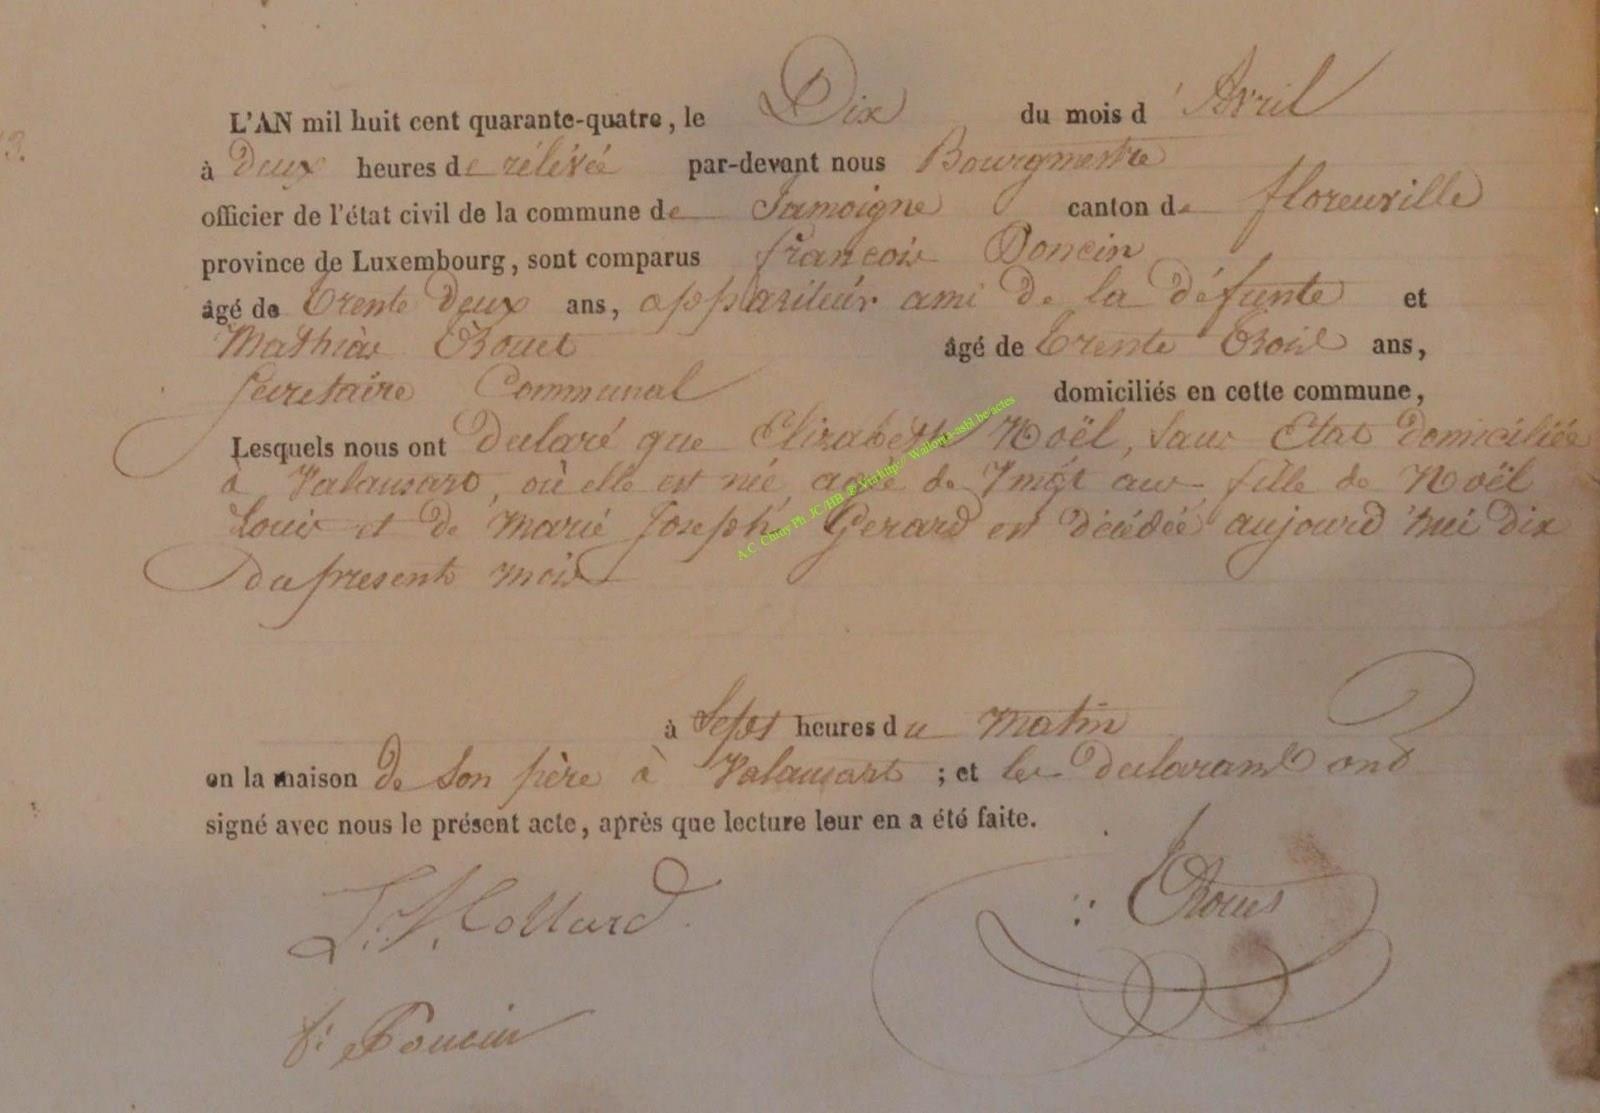 13.
L'AN mil huit cent quarante-quatre, le Dix du mois d'Avril
à Deux heures de rélévée par-devant nous Bourgmestre
officier de l'état civil de la commune de Jamoigne canton de florenville
province de Luxembourg, sont comparus françois Poncin
âgé de Trente Deux ans, appariteur ami De la défunte et
Mathias Trouet âgé de Trente Trois ans,
Secretaire Communal domiciliés en cette commune,
Lesquels nous ont Declaré que Elizabeth Noël, Sans Etat Domiciliée
à Valansart, où elle est née agée de Vingt ans fille de Noël
Louis et de Marie Joseph Gerard est décédée aujourd'hui dix
du present mois
à Sept heures du Matin
en la maison de Son père à Valansart ; et les Declarants ont
signé avec nous le présent acte, après que lecture leur en a été faite.
Collard
Trouet
f: Poncin
A.C Chiny Ph JC/HB © Via http:// Wallonia-asbl.be/actes